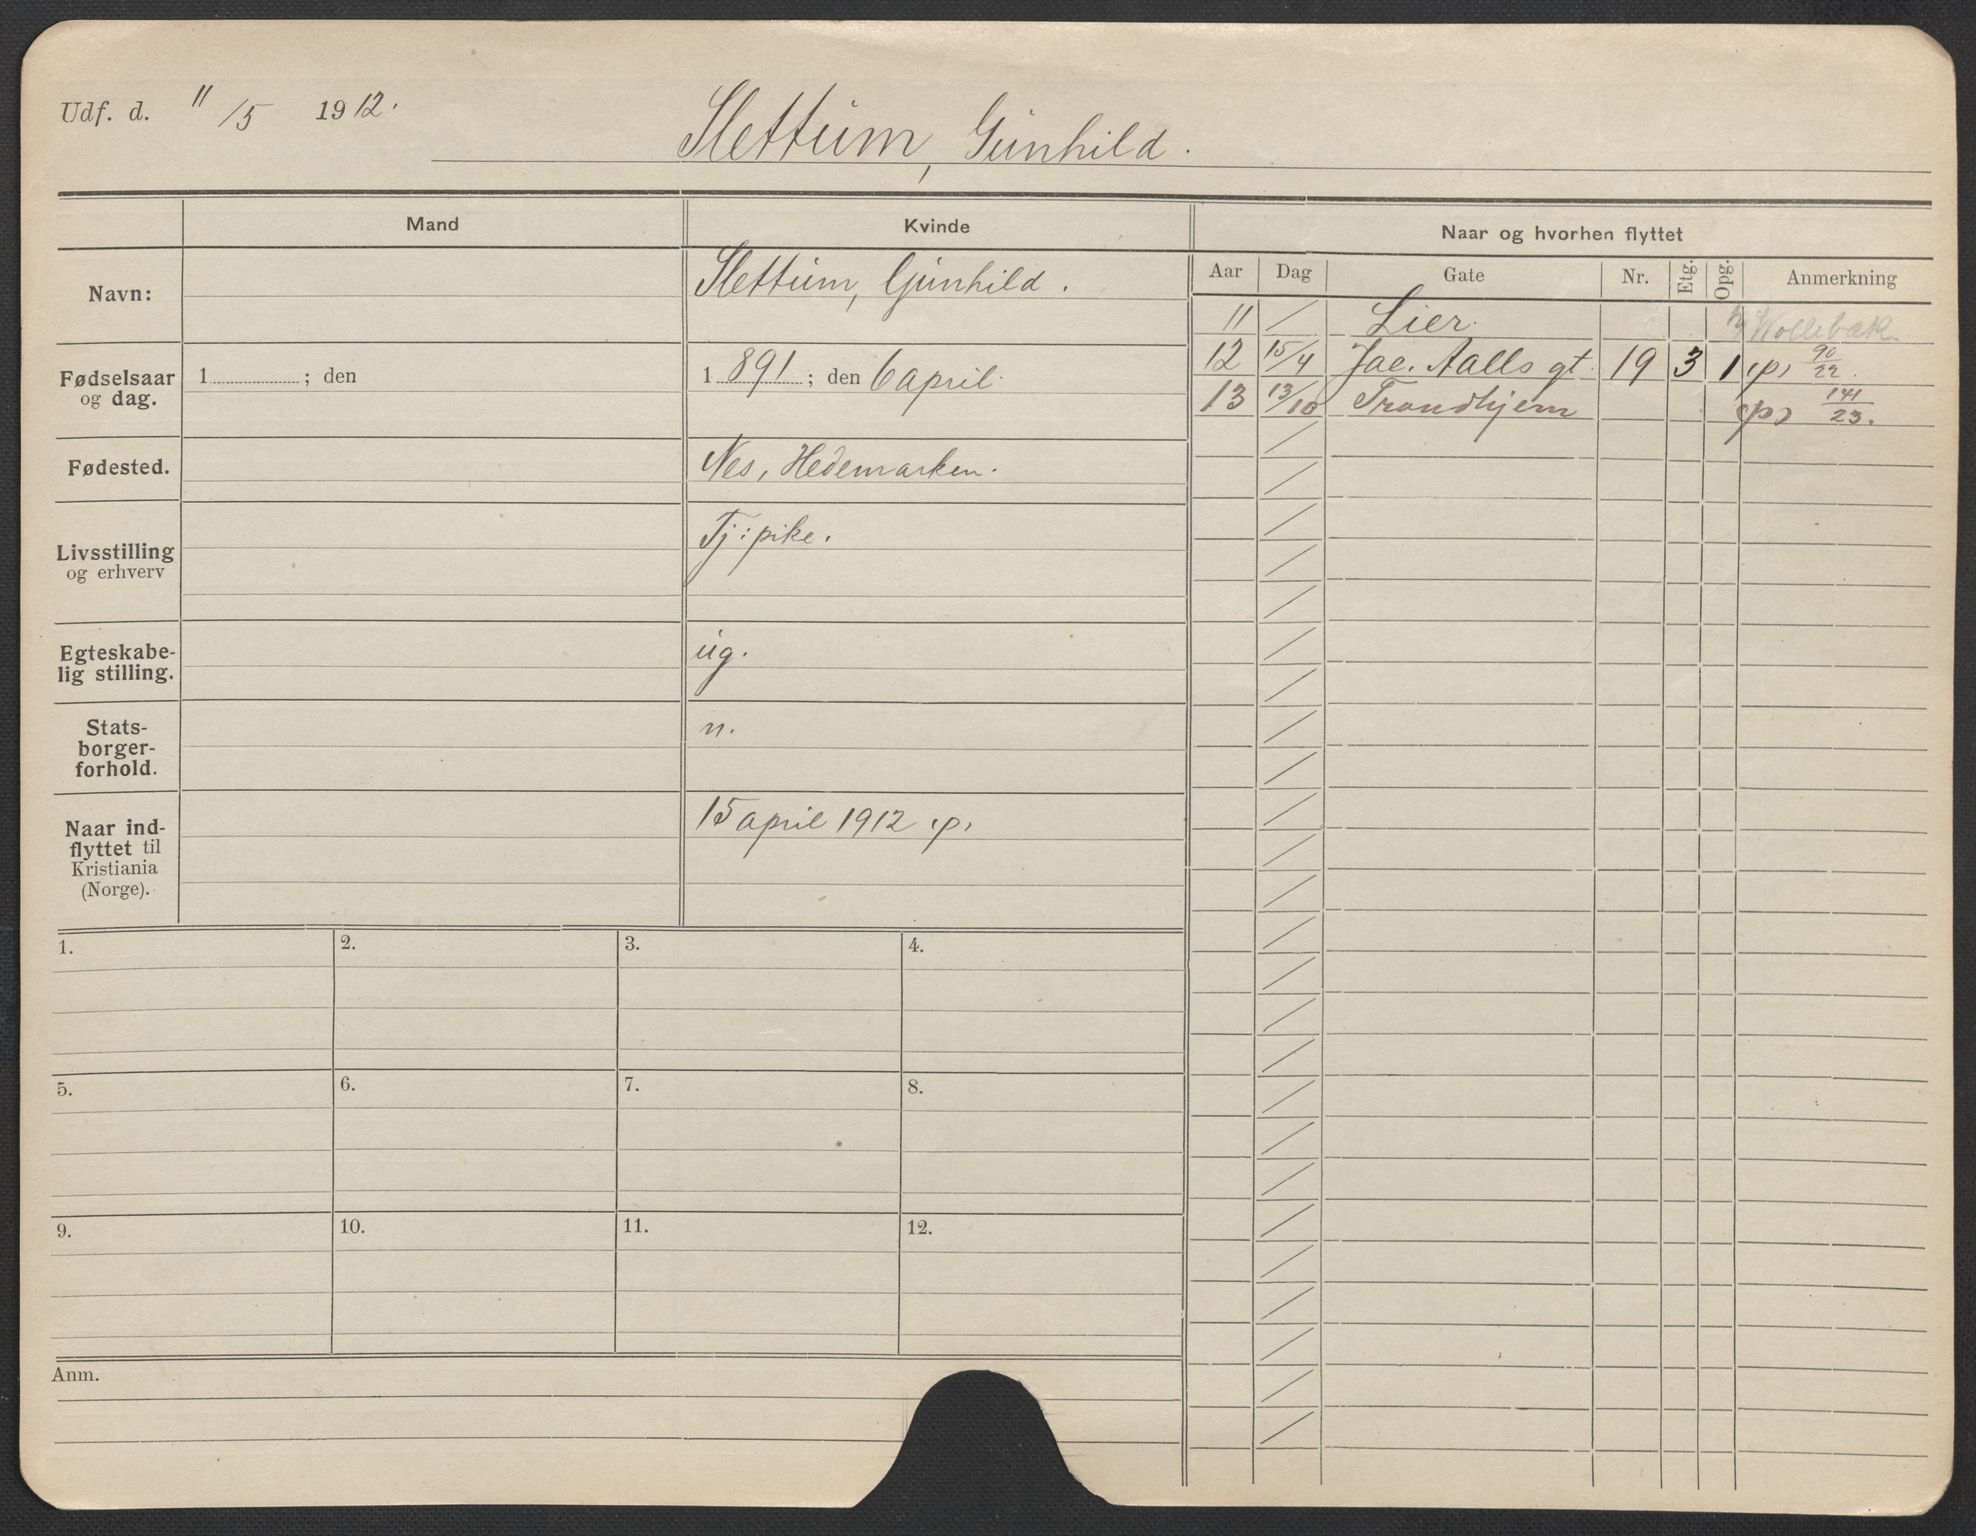 Udf. d. 11/5 1912.
Slettum, Gunhild.
Mand
Kvinde
Naar og hvorhen flyttet
Aar Dag Gate Nr. Etg. Opg. Anmerkning
Navn:
Slettum, Gunhild.
Fødselsaar
og dag.
1 ; den
1 891 ; den 6 april.
Fødested.
Nes, Hedemarken.
Livsstilling
og erhverv
Tj: pike.
Egteskabe-
lig stilling.
ug.
Stats-
borger-
forhold.
n.
Naar ind-
flyttet til
Kristiania
(Norge).
15 april 1912 (p)
11 / Lier. Wollebæk.
12 15/4 Jac. Aalls gt. 19 3 1 (p) 90/22.
13 13/10 Trondhjem (p) 141/23.
1. 2. 3. 4.
5. 6. 7. 8.
9. 10. 11. 12.
Anm.